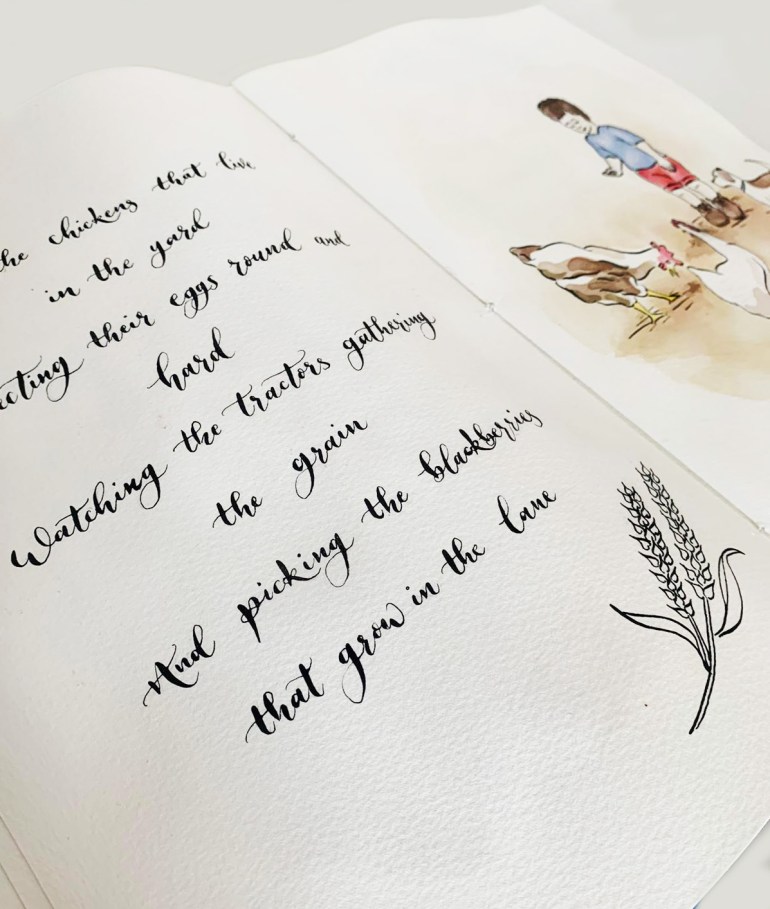 the chickens that live
in the yard
their eggs round and
hard
Watching the tractors gathering
the grain
And picking the blackberries
that grow in the lane